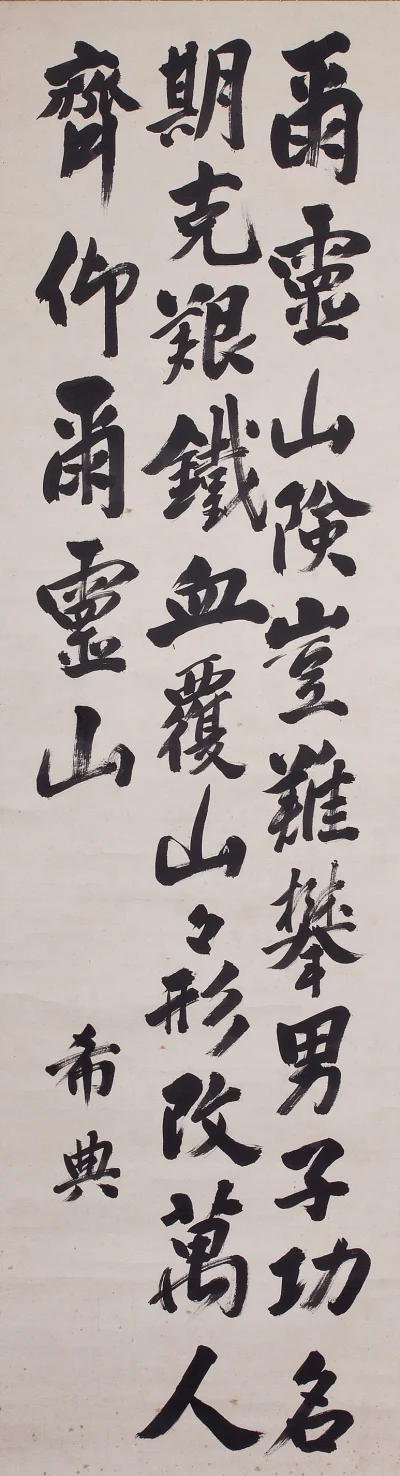 爾靈山険豈難攀男子功名
期克艱鐵血覆山々形改萬人
齊仰爾靈山
希典